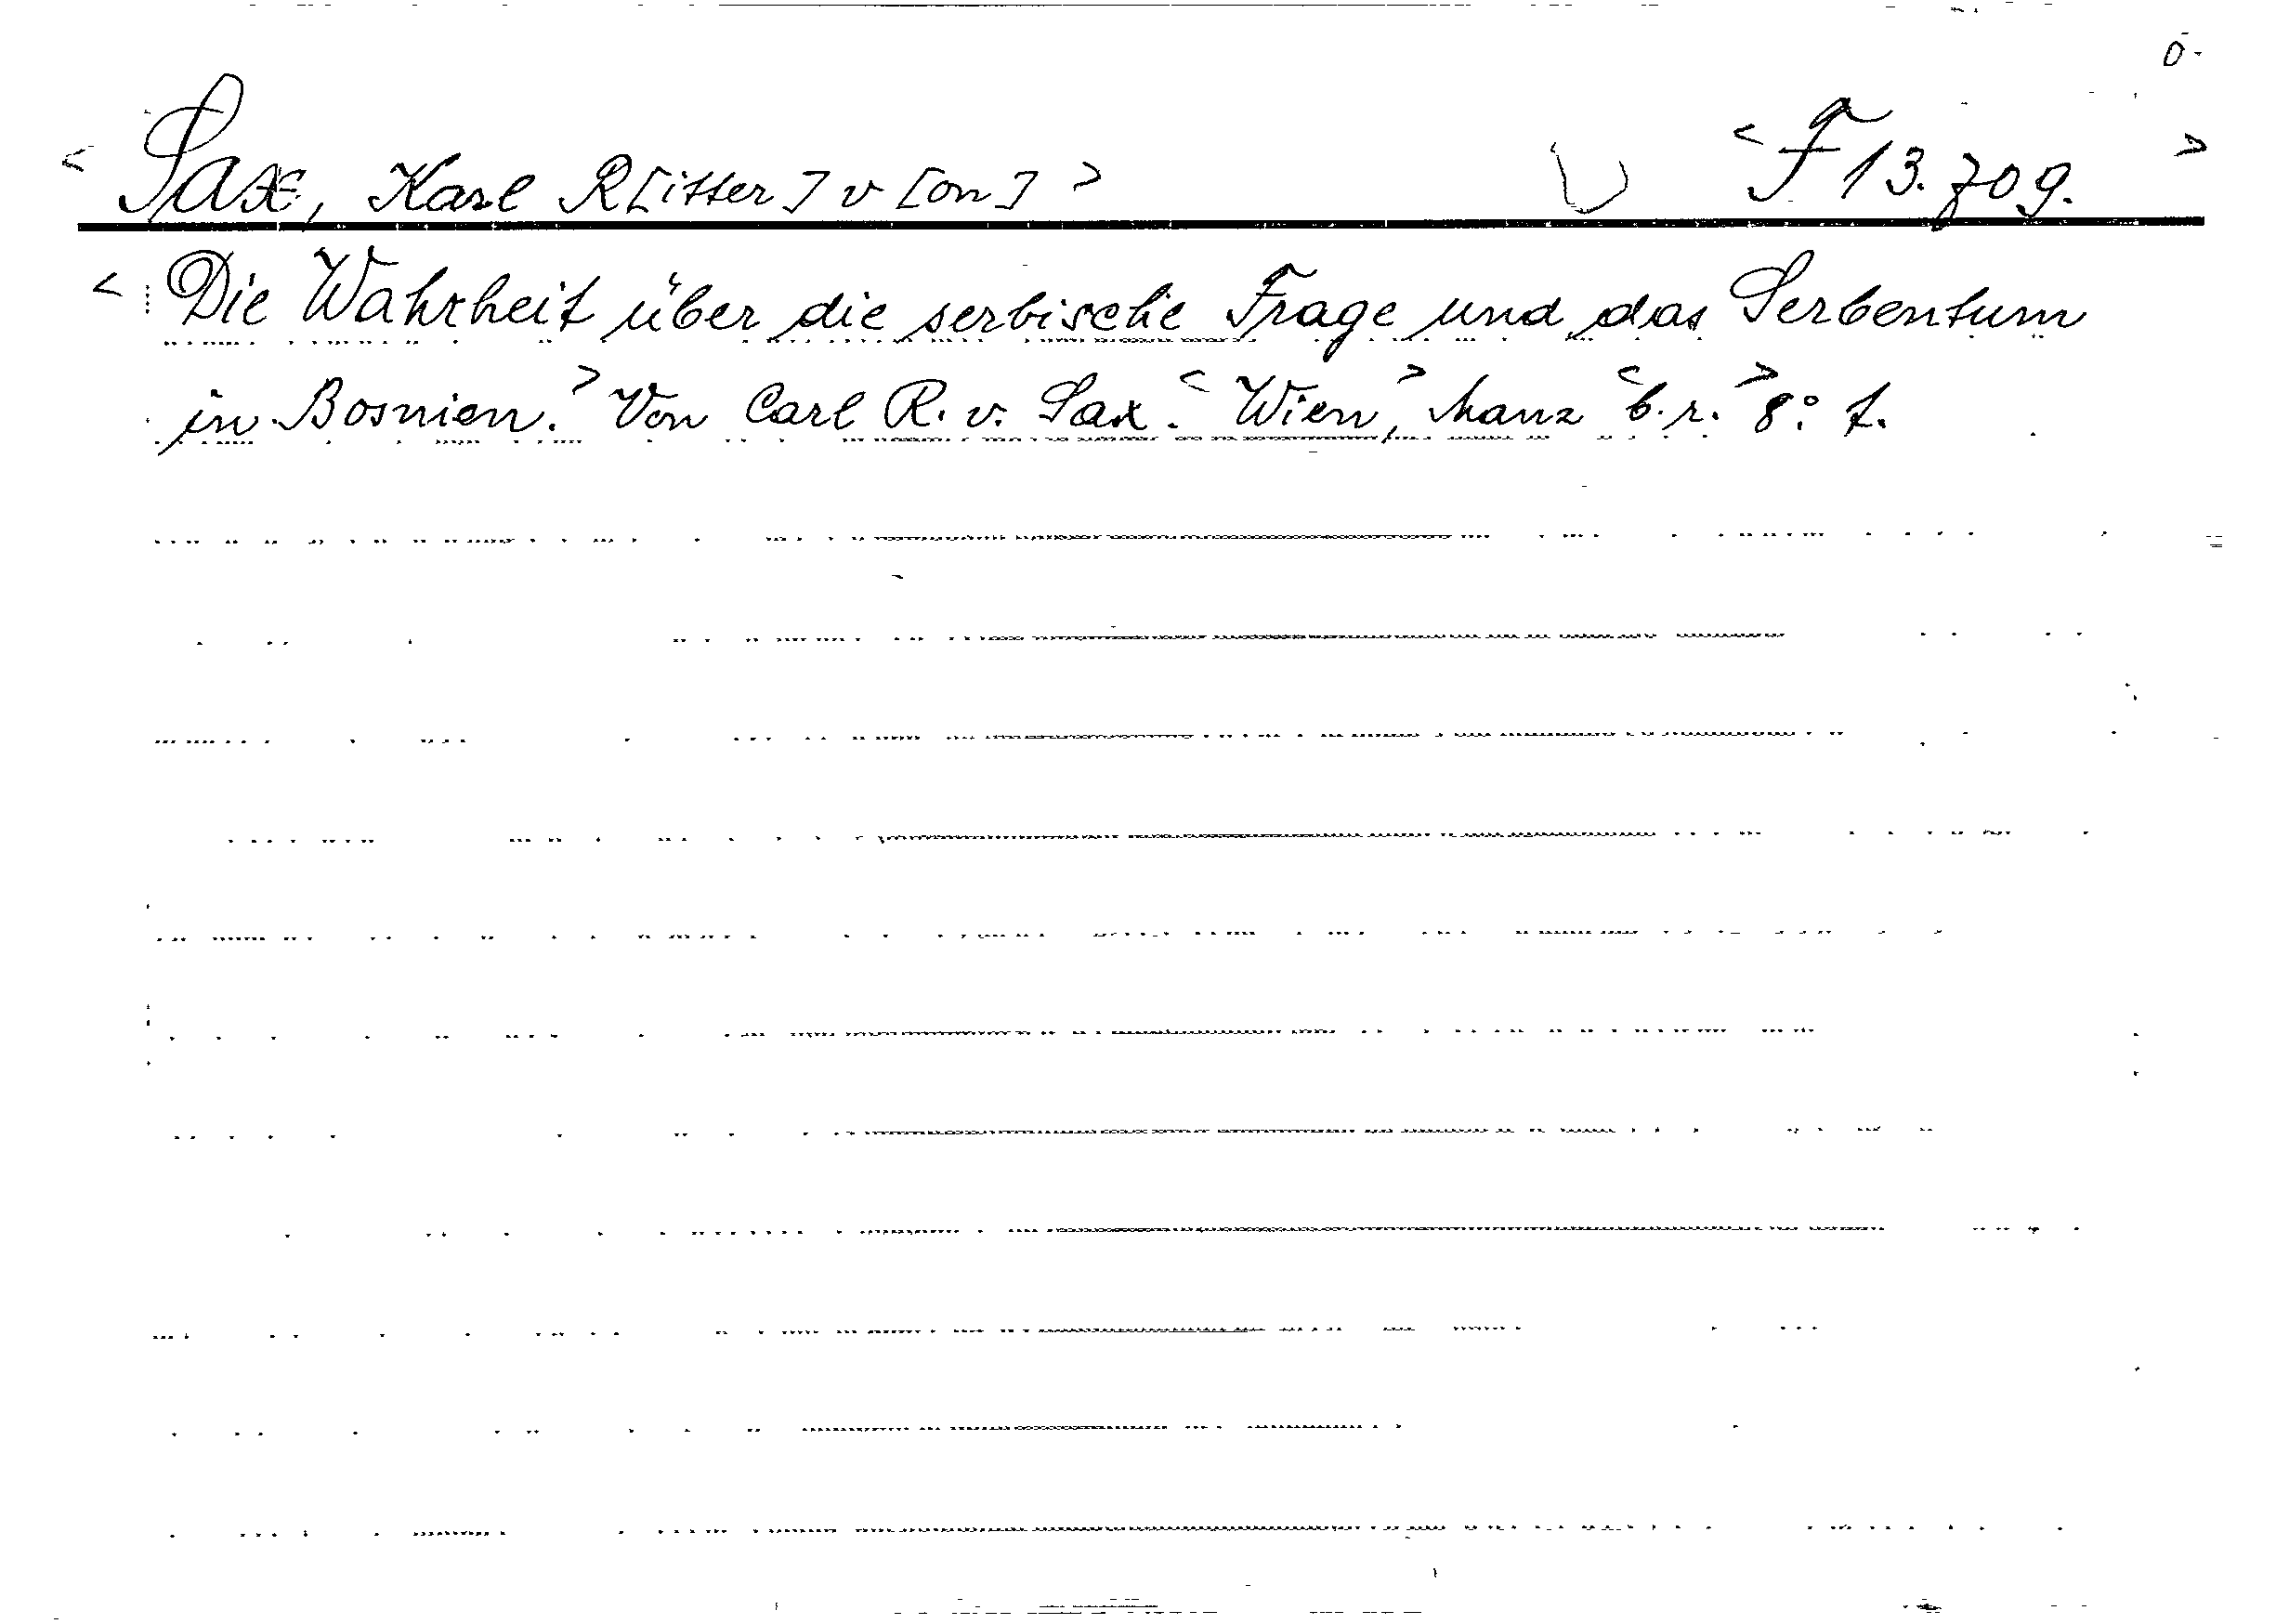 ō-
< Sax, Karl R[itter] v[on] > U < F 13.709. >
< Die Wahrheit über die serbische Frage und das Serbentum
in Bosnien. > Von Carl R. v. Sax. < Wien, > Manz < b. r. > 8° f.